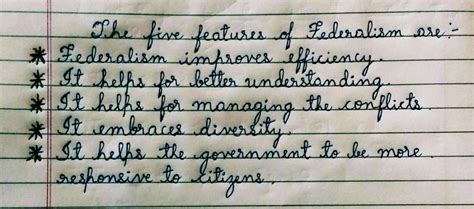 The five features of Federalism are:-
* Federalism improves efficiency.
* It helps for better understanding.
* It helps for managing the conflicts.
* It embraces diversity.
* It helps the government to be more
responsive to citizens.